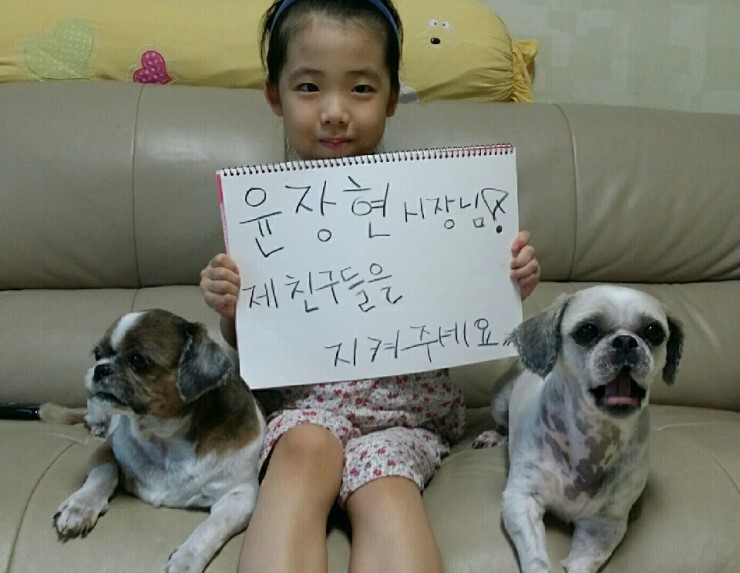 윤장현 시장님!
제 친구들을
지켜주세요